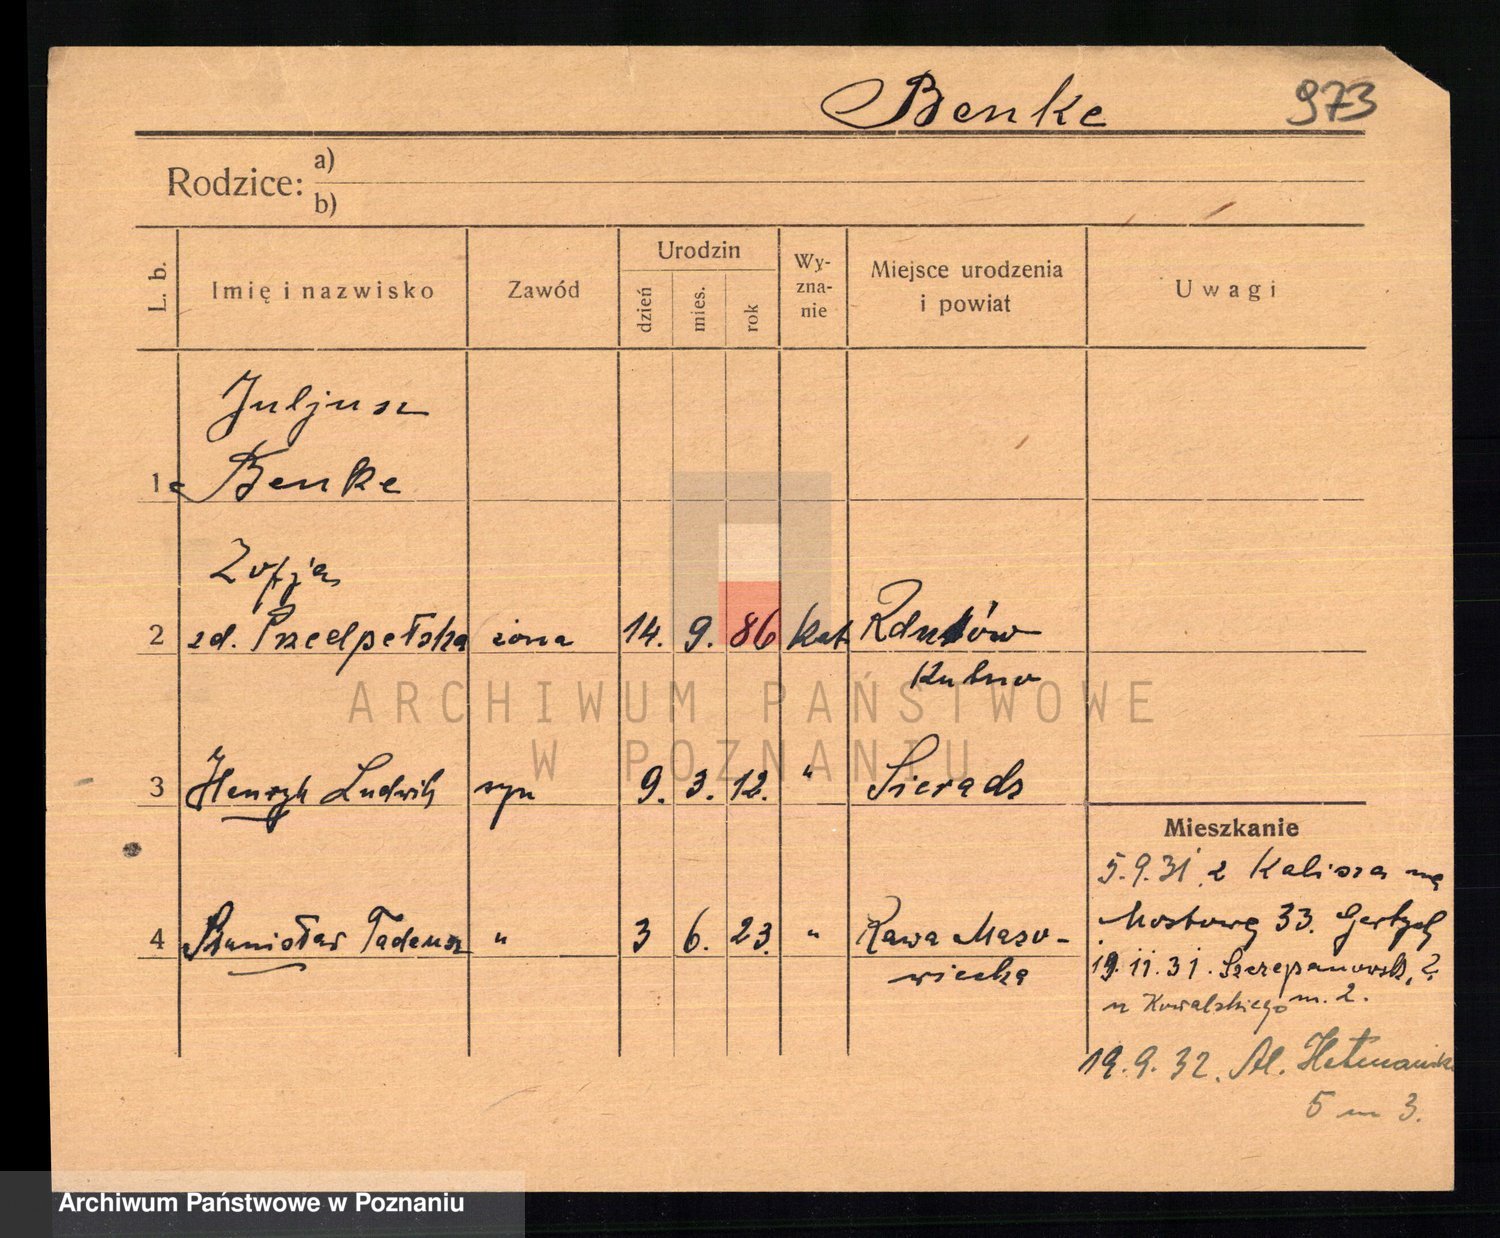 Benke 973
Rodzice: a)
b)
L. b. Imię i nazwisko Zawód Urodzin dzień mies. rok Wy-zna-nie Miejsce urodzenia i powiat Uwagi
Juljusz
1 Benke
Zofja
2 zd. Przedpełska żona 14. 9. 86 kat. Rdutów
Kutno
ARCHIWUM PAŃSTWOWE
W POZNANIU
3 Henryk Ludwik syn 9. 3. 12. " Sieradz
Mieszkanie
5.9.31 z Kalisza na
Mostową 33.
4 Stanisław Tadeusz " 3 6. 23. " Rawa Mazo-
wiecka
19.11.31. Szczepanowsk. 2.
u Kowalskiego m. 2.
19.9.32. Al. Hetmańsk
5 m 3.
Archiwum Państwowe w Poznaniu